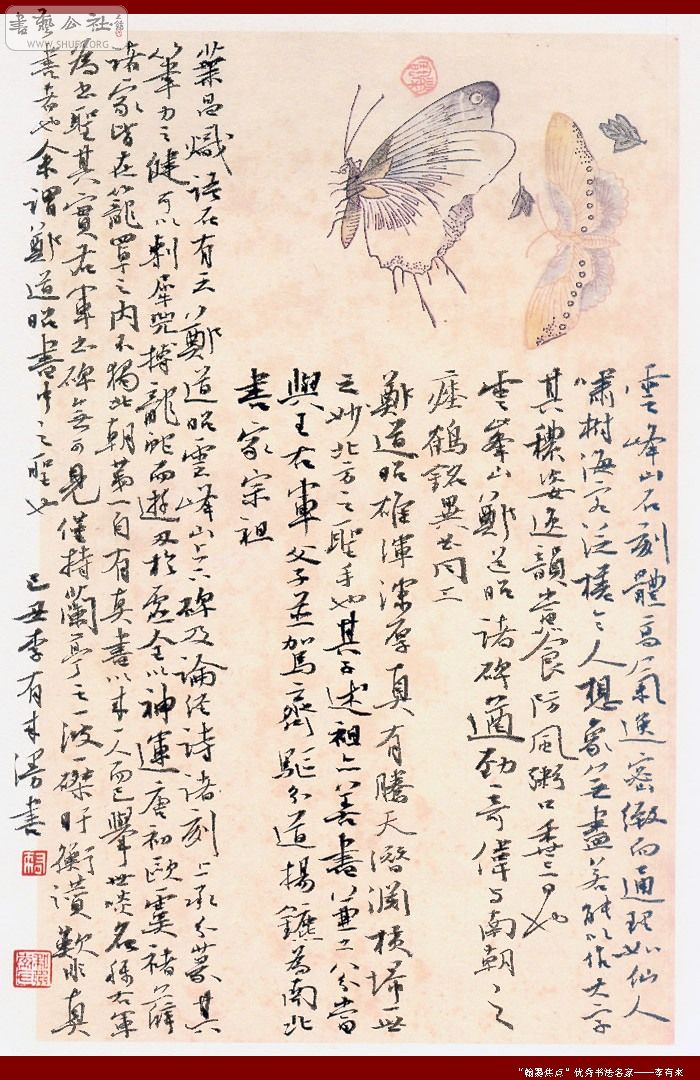 書藝公社
WWW.SHUFA.ORG
雲峰山石刻體高氣逸密緻而通理如仙人
嘯樹海客泛槎令人想象無盡若能以作大字
其穠姿逸韻當食防風粥口香三日也
雲峰山鄭道昭諸碑遒勁奇偉與南朝之
瘞鶴銘異曲同工
鄭道昭雄渾深厚真有騰天潛淵橫掃一世
之妙北方之聖手也其子述祖亦善書兼之分當
與王右軍父子並駕齊驅分道揚鑣為南北
書家宗祖
葉昌熾語石有云鄭道昭雲峰山上下碑及論經詩諸刻上承分篆其
筆力之健可以剸犀兕搏龍蛇而遊刃於虛全以神運唐初歐虞褚薛
諸家皆在籠罩之內不獨北朝第一自有真書以來一人而已舉世啖名稱右軍
為書聖其實右軍書碑無可見僅持蘭亭之一波一磔盱衡讚歎非真
書者也余謂鄭道昭書中之聖也
己丑李有來漫書
"翰墨焦点"优秀书法名家——李有来